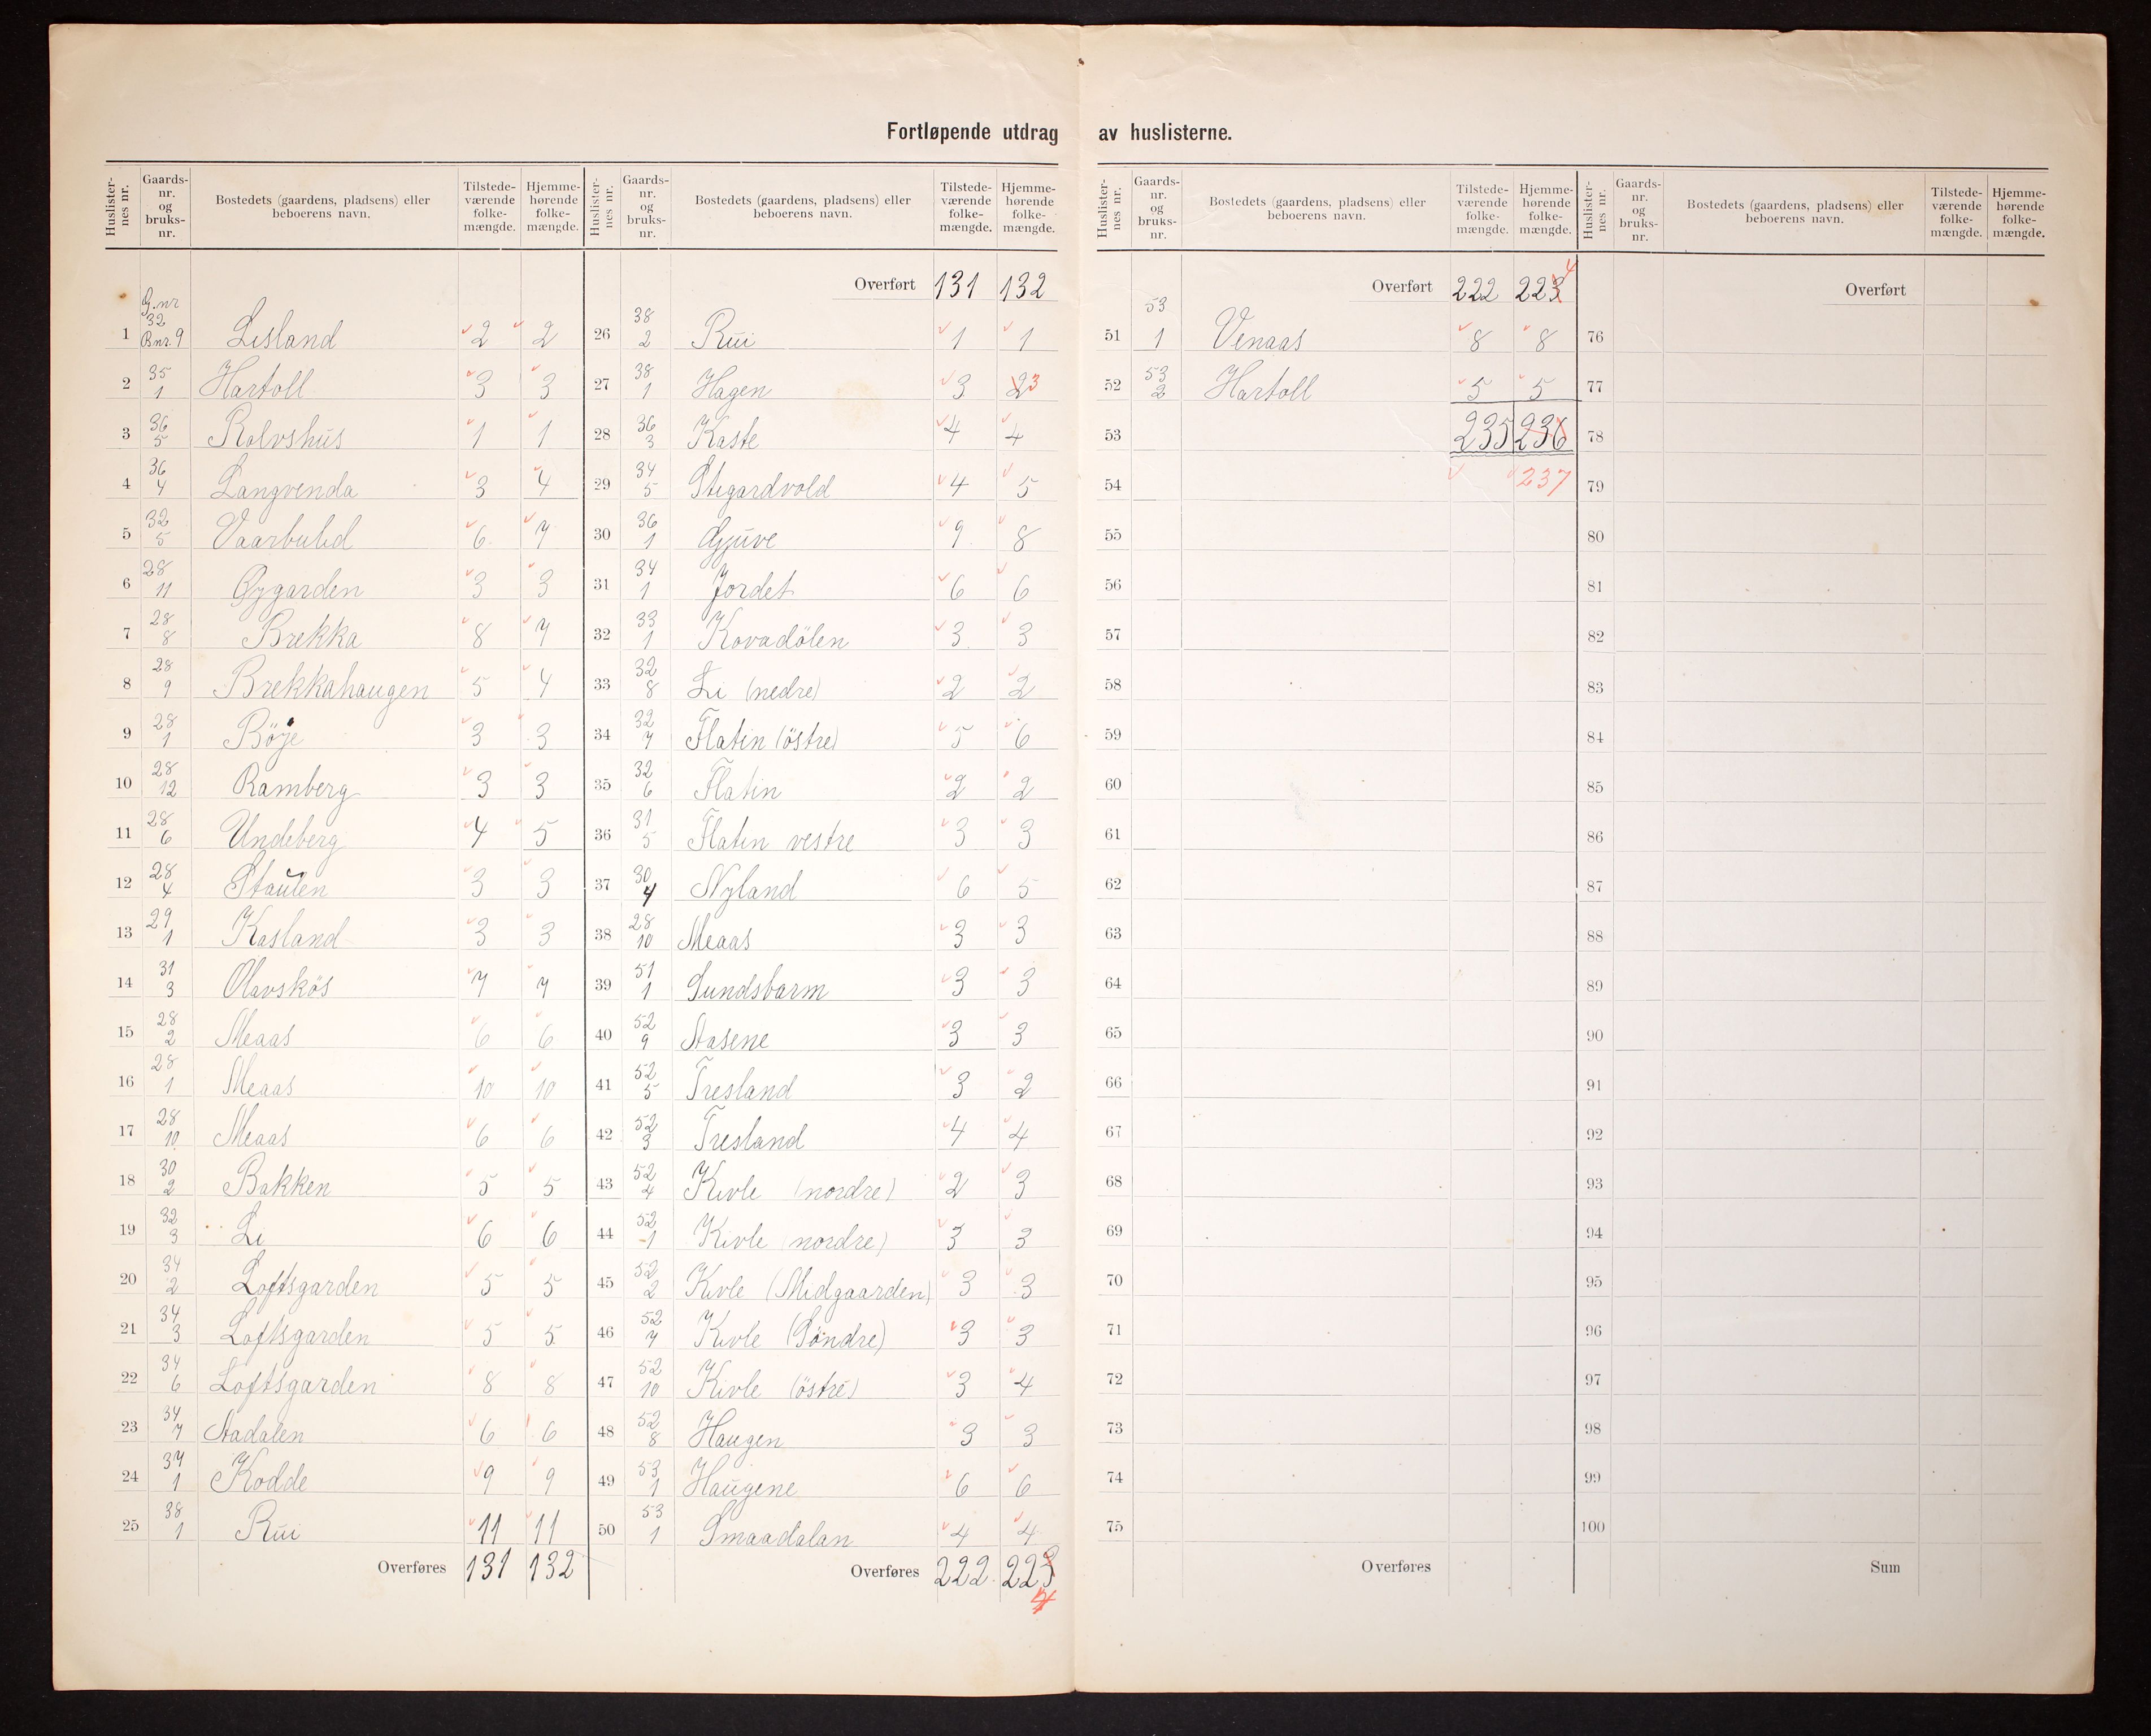 Fortløpende utdrag av huslisterne.
Huslister-nes nr. | Gaards-nr. og bruks-nr. | Bostedets (gaardens, pladsens) eller beboerens navn. | Tilstede-værende folke-mængde. | Hjemme-hørende folke-mængde.
1 G.nr 32 Bnr. 9 Lisland 2 2
2 35 1 Hartoll 3 3
3 36 5 Rolvshus 1 1
4 36 4 Langvenda 3 4
5 32 5 Vaarbulid 6 7
6 28 11 Øygarden 3 3
7 28 8 Brekka 8 7
8 28 9 Brekkahaugen 5 4
9 28 1 Böje 3 3
10 28 12 Ramberg 3 3
11 28 6 Undeberg 4 5
12 28 4 Staulen 3 3
13 29 1 Kasland 3 3
14 31 3 Olavskös 7 7
15 28 2 Meaas 6 6
16 28 1 Meaas 10 10
17 28 10 Meaas 6 6
18 30 2 Bakken 5 5
19 32 3 Li 6 6
20 34 2 Loftsgarden 5 5
21 34 3 Loftsgarden 5 5
22 34 6 Loftsgarden 8 8
23 34 7 Stadalen 6 6
24 37 1 Kodde 9 9
25 38 1 Rui 11 11
Overføres 131 132
Huslister-nes nr. | Gaards-nr. og bruks-nr. | Bostedets (gaardens, pladsens) eller beboerens navn. | Tilstede-værende folke-mængde. | Hjemme-hørende folke-mængde.
Overført 131 132
26 38 2 Rui 1 1
27 38 1 Hagen 3 2 3
28 36 3 Kaste 4 4
29 34 5 Stigardvold 4 5
30 36 1 Gjuve 9 8
31 34 1 Jordet 6 6
32 33 1 Kovadölen 3 3
33 32 8 Li (nedre) 2 2
34 32 7 Flatin (östre) 5 6
35 32 6 Flatin 2 2
36 31 5 Flatin vestre 3 3
37 30 4 Nyland 6 5
38 28 10 Meaas 3 3
39 51 1 Sundsbarm 3 3
40 52 9 Stasene 3 3
41 52 5 Tresland 3 2
42 52 3 Tresland 4 4
43 52 4 Kivle (nordre) 2 3
44 52 1 Kivle (nordre) 3 3
45 52 2 Kivle (Midgaarden) 3 3
46 52 7 Kivle (Söndre) 3 3
47 52 10 Kivle (östre) 3 4
48 52 8 Haugen 3 3
49 53 1 Haugene 6 6
50 53 1 Smaadalan 4 4
Overføres 222 223 4
Huslister-nes nr. | Gaards-nr. og bruks-nr. | Bostedets (gaardens, pladsens) eller beboerens navn. | Tilstede-værende folke-mængde. | Hjemme-hørende folke-mængde.
Overført 222 223 4
51 53 1 Venaas 8 8
52 53 2 Hartoll 5 5
53 235 236
54 237
55
56
57
58
59
60
61
62
63
64
65
66
67
68
69
70
71
72
73
74
75
Overføres
Huslister-nes nr. | Gaards-nr. og bruks-nr. | Bostedets (gaardens, pladsens) eller beboerens navn. | Tilstede-værende folke-mængde. | Hjemme-hørende folke-mængde.
Overført
76
77
78
79
80
81
82
83
84
85
86
87
88
89
90
91
92
93
94
95
96
97
98
99
100
Sum